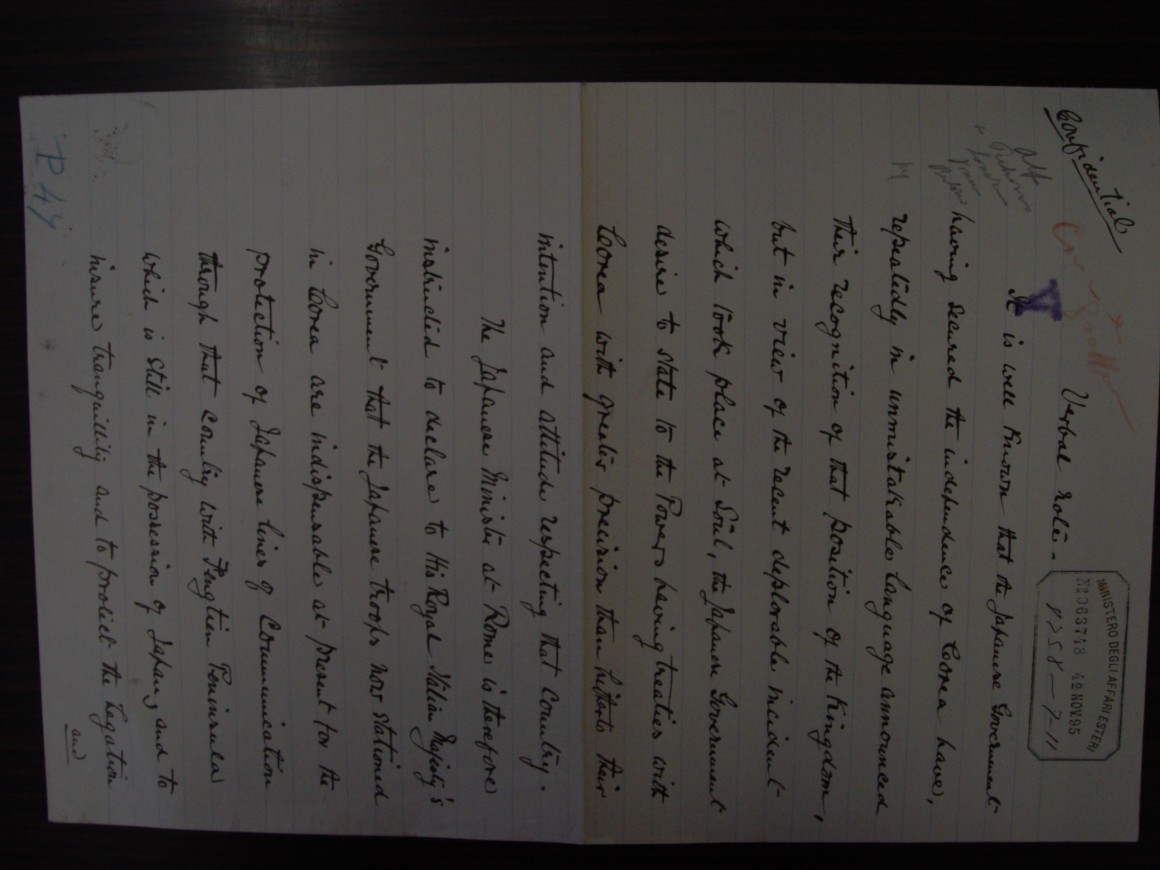 Confidential
Verbal Note.
MINISTERO DEGLI AFFARI ESTERI
NOV. 95
It is well known that the Japanese Government
having secured the independence of Corea have,
repeatedly in unmistakable language announced
their recognition of that position of the Kingdom,
but in view of the recent deplorable incident
which took place at Söul, the Japanese Government
desire to state to the Powers having treaties with
Corea with greater precision than hitherto their
intention and attitude respecting that country.
The Japanese Minister at Rome is therefore
instructed to declare to His Royal Italian Majesty's
Government that the Japanese troops now stationed
in Corea are indispensable at present for the
protection of Japanese lines of Communication
through that country with Fengtien Peninsula
which is still in the possession of Japan, and to
insure tranquillity and to protect the Legation
and
P 44